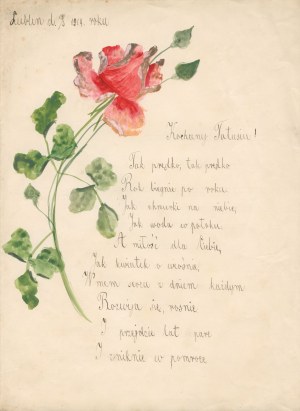 Lublin d. 8 1914. roku
Kochany Tatusiu!
Tak prędko, tak prędko
Rok biegnie po roku.
Jak chmurki na niebie,
Jak woda w potoku.
A miłość dla Ciebie,
Jak kwiatek o wiośnie,
W mem sercu z dniem każdym
Rozwija się, rośnie
I przejdzie lat parę
I zniknie w pomroce